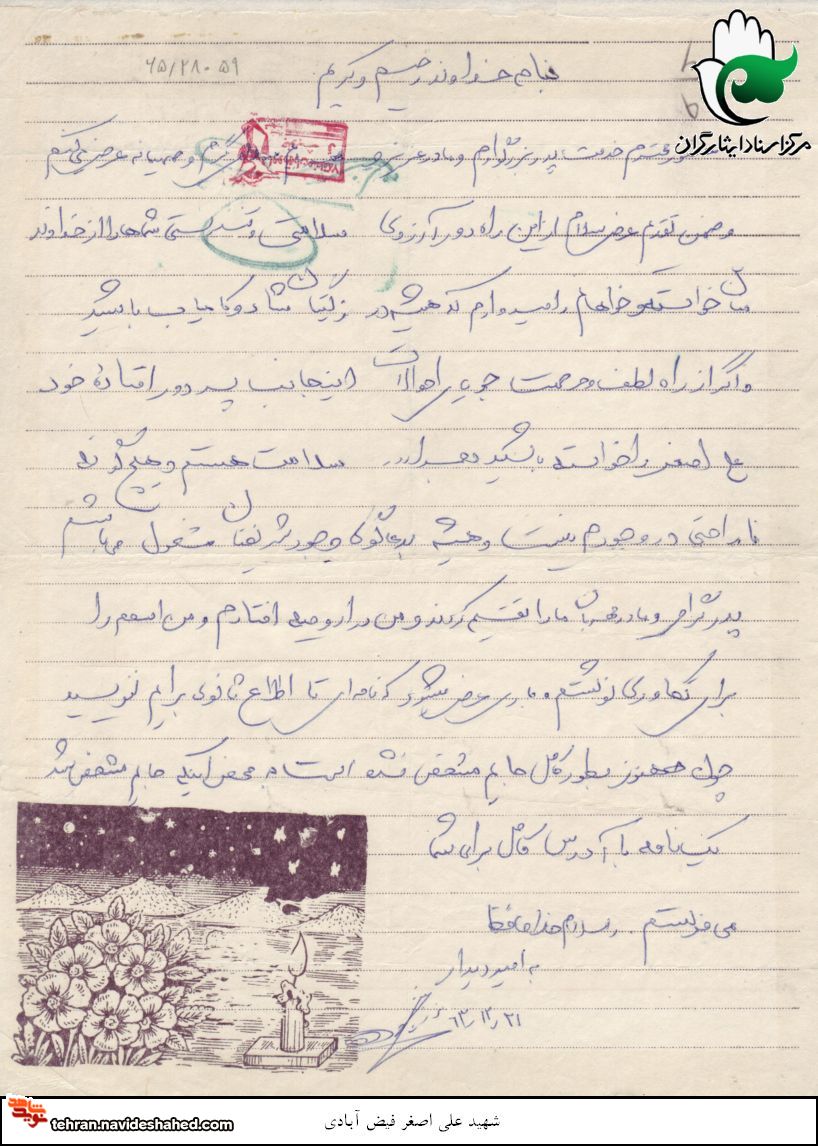 بنام خداوند رحیم و کریم
۶۵/۲۸۰۵۹
مرکز اسناد ایثارگران
حضور محترم خدمت پدر بزرگوارم و مادر عزیزم سلام گرم و صمیمانه عرض می‌کنم
و ضمن تقدیم عرض سلام از این راه دور آرزوی سلامتی و تندرستی شماها را از خداوند
منان خواسته و خواهانم و امیدوارم که همیشه در زندگیتان شاد و کامیاب باشید
و اگر از راه لطف و مرحمت جویای احوالات اینجانب پسر دور افتاده خود
علی اصغر را خواسته باشید بحمدالله سلامت هستم و هیچ گونه
ناراحتی در وجودم نیست و همیشه به دعاگوی وجود شریفتان مشغول میباشم
پدر گرامی و مادر مهربان ما را تقسیم کردند و من در ارومیه افتادم و من اسمم را
برای تکاوری نوشتم و باری عرض میشود که نامه‌ای تا اطلاع ثانوی برایم ننویسید
چون هنوز بطور کامل جایم مشخص نشده است به محض اینکه جایم مشخص شد
یک نامه با آدرس کامل برای شما
می فرستم. والسلام خداحافظ
به امید دیدار
۶۳/۱۲/۲۱
شهید علی اصغر فیض آبادی
نوید شاهد
tehran.navideshahed.com